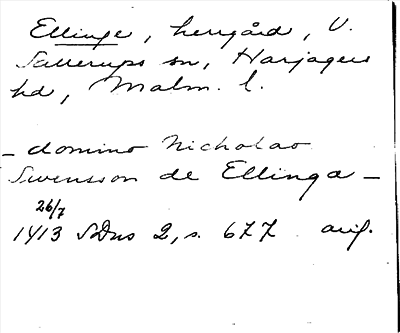 Ellinge, herrgård, V.
Sallerups sn, Harjagers
hd, Malm. l.
– domino Nicholao
Swensson de Ellinga –
26/7
1413 SDns 2, s. 677 avf.